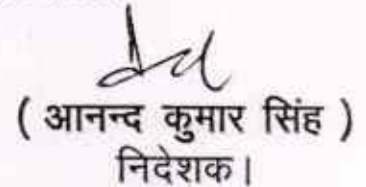 ( आनन्द कुमार सिंह )
निदेशक।